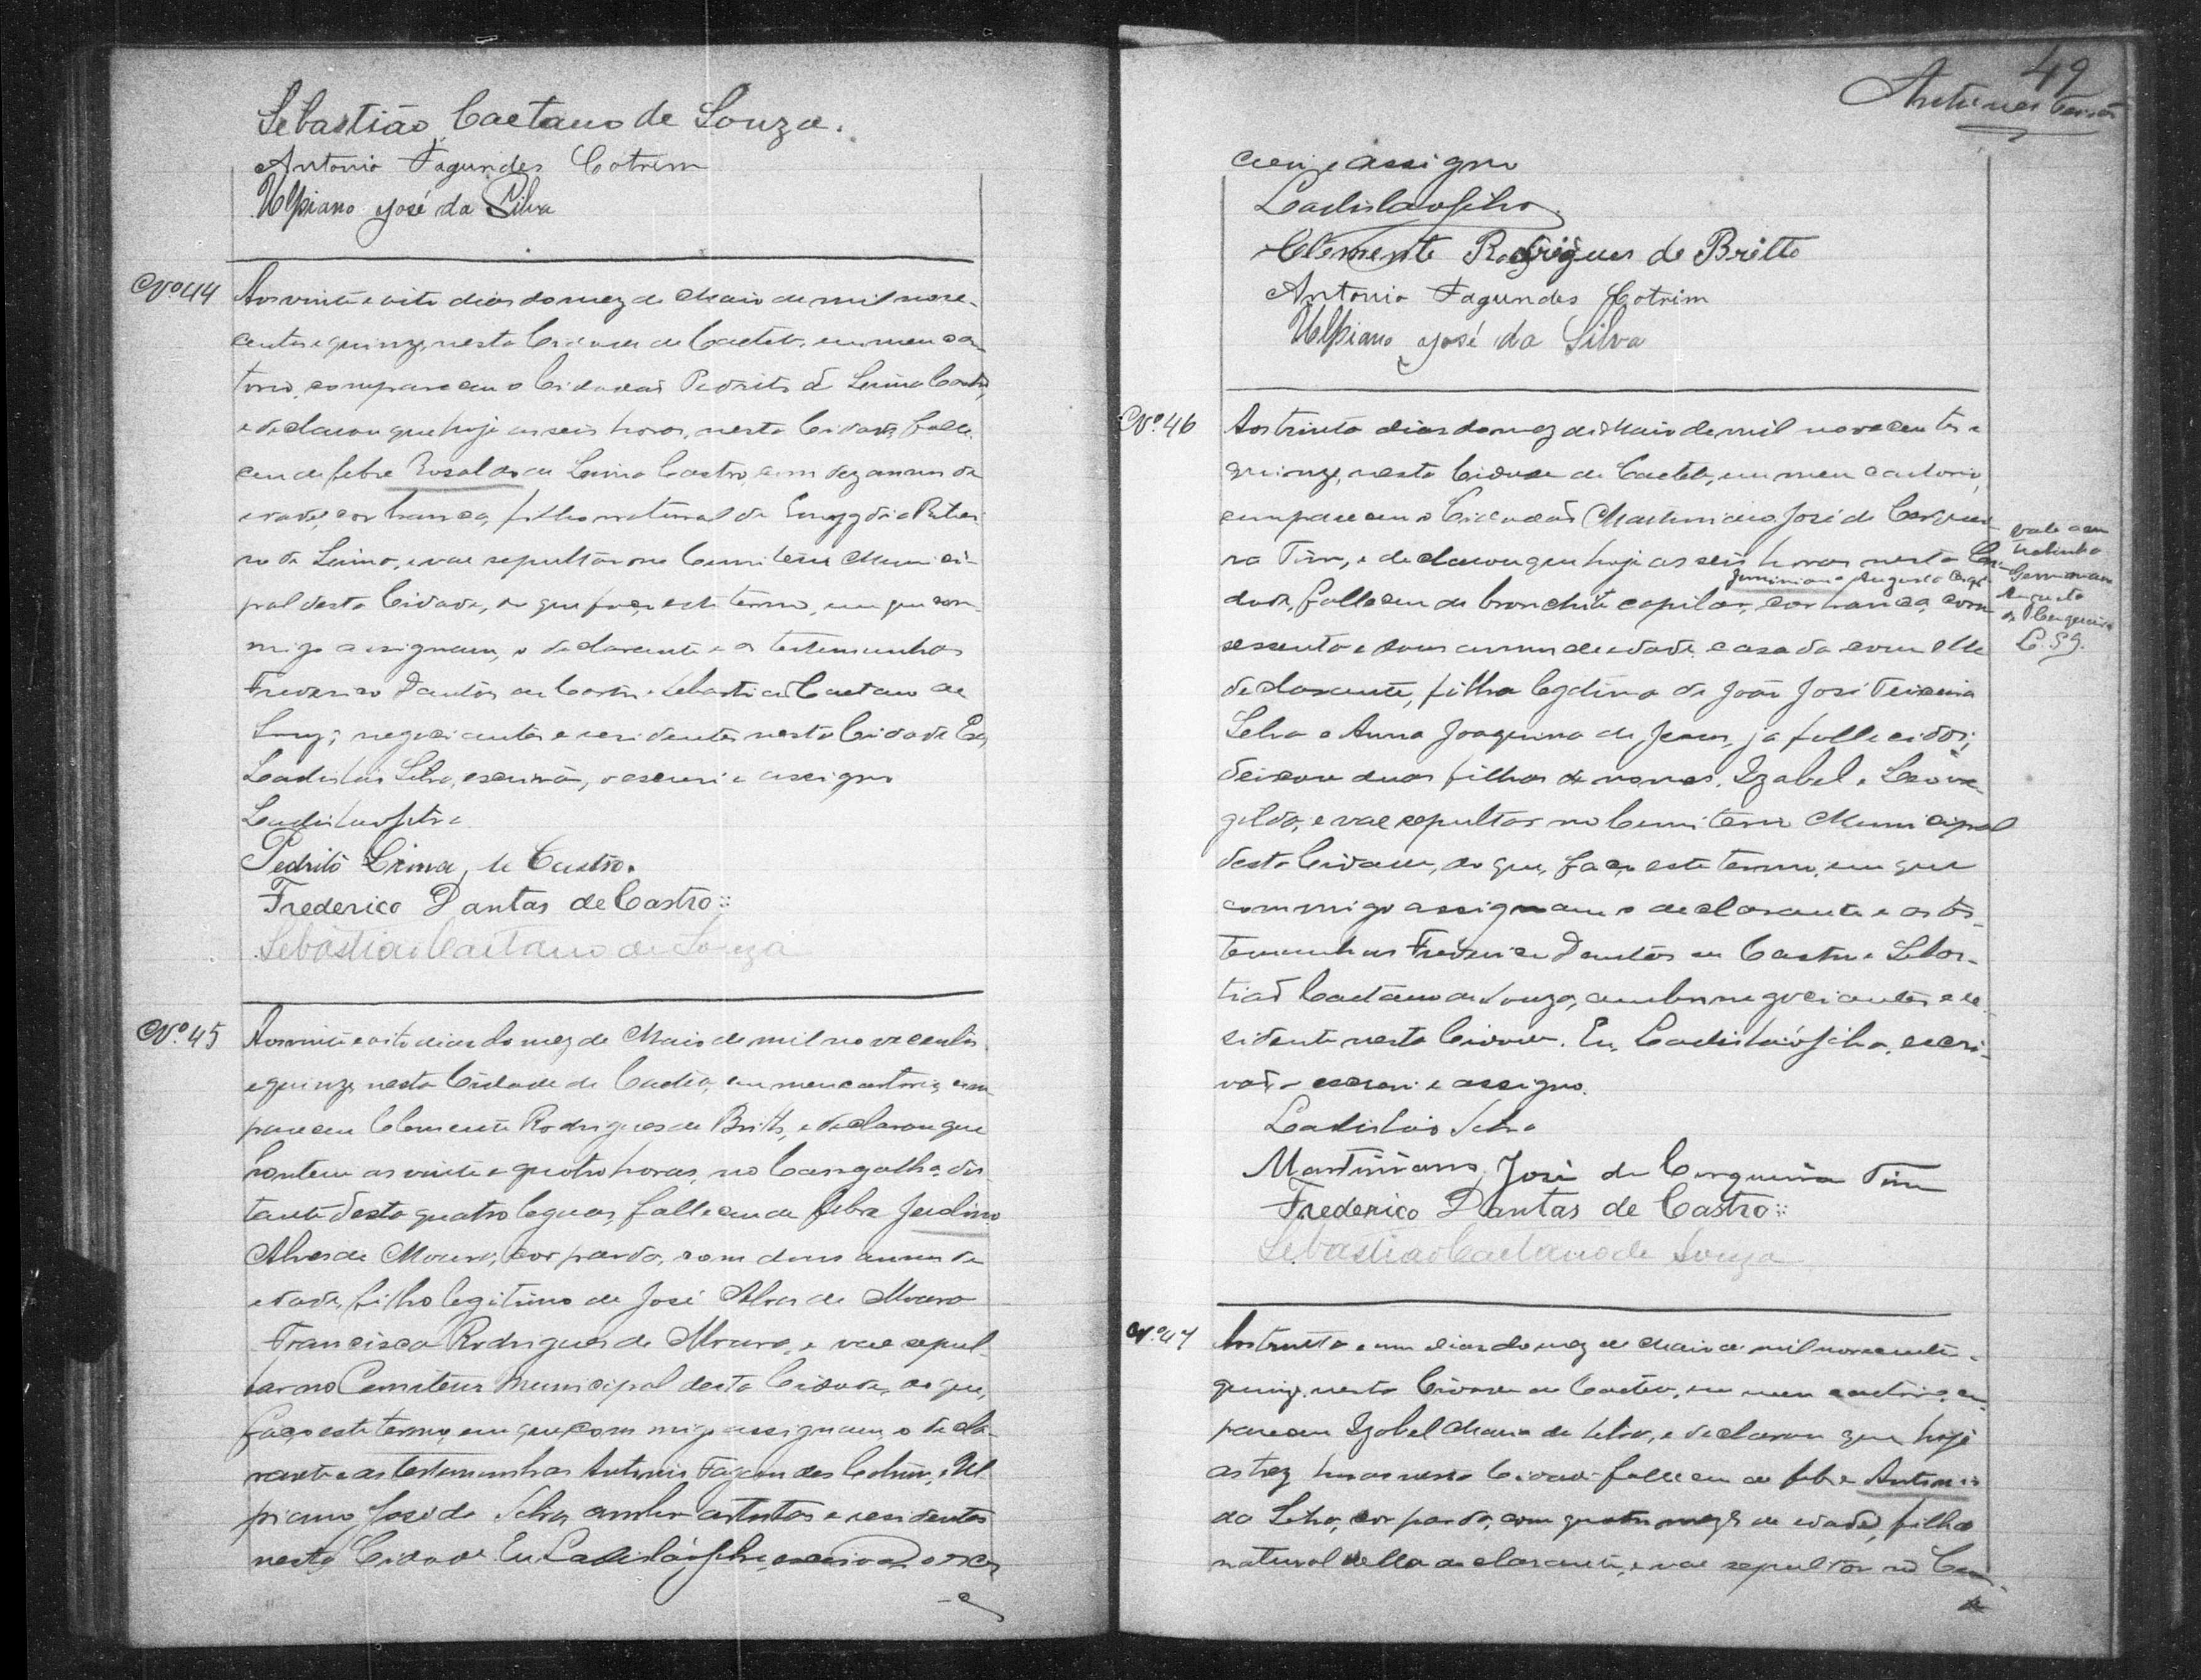 Sebastião Caetano de Souza.
Antonio Fagundes Cotrim
Ulpiano José da Silva
Nº 44
Aos vinte e oito dias do mez de Maio de mil nove-
centos e quinze, nesta Cidade de Caeteté, em meu car-
torio, compareceu o Cidadão Pedrito de Lima Castro,
e declarou que hoje as seis horas, nesta Cidade, falle-
ceu de febre de Lima Castro, com dez annos de
edade, cor branca, filho natural de Emygdia
de Lima, e vae sepultar no Cemiterio Munici-
pal desta Cidade, do que faço este termo, em que com-
migo assignam, o declarante e as testemunhas
Frederico Dantas de Castro e Sebastião Caetano de
Souza, negociantes e residentes nesta Cidade. Eu,
Ladisláo Silva, escrivão, o escrevi e assigno
Ladisláo Silva
Pedrito Lima de Castro.
Frederico Dantas de Castro::
Sebastião Caetano de Souza
Nº 45
Aos vinte e oito dias do mez de Maio de mil novecentos
e quinze, nesta Cidade de Caeteté, em meu cartorio, com
pareceu Clemente Rodrigues de Britto, e declarou que
hontem as vinte e quatro horas, no Cangalha, dis-
tante desta quatro leguas, falleceu de febre
Alves de Moura, cor parda, com dous annos de
edade, filho legitimo de José Alves de Moura
Francisca Rodrigues de Moura, e vae sepul-
tar no Cemiterio Municipal desta Cidade, do que,
faço este termo, em que com migo assignam, o decla-
rante e as testemunhas Antonio Fagundes Cotrim, e Ul
piano José da Silva, ambos artistas e residentes
nesta Cidade. Eu Ladisláo Silva, escrivão o escr
49
Antunes
evi, e assigno
Ladisláo Silva
Clemente Rodrigues de Britto
Antonio Fagundes Cotrim
Ulpiano José da Silva
Nº 46
Aos trinta dias do mez de Maio de mil novecentos e
quinze, nesta Cidade de Caeteté, em meu cartorio,
compareceu o Cidadão Martiniano José de Cerquei-
ra Tim, e declarou que hoje as seis horas nesta Ci-
Augusta
dade, falleceu de bronchite capilar, cor branca, com
sessenta e dous annos de edade casada com elle
declarante, filha legitima de João José Teixeira
Silva e Anna Joaquina de Jesus, ja fallecidos;
deixou duas filhas de nomes, Izabel e Leove-
gilda, e vae sepultar no Cemiterio Municipal
desta Cidade, do que, faço este termo, em que
commigo assignam o declarante e as tes-
temunhas Frederico Dantas de Castro e Sebas-
tião Caetano de Souza, ambos negociantes e re-
sidente nesta Cidade. Eu, Ladisláo Silva, escri-
vão o escrevi e assigno.
Ladisláo Silva
Martiniano José de Cerqueira Tim
Frederico Dantas de Castro::
Sebastião Caetano de Souza
Vale a en
trelinha
Augusta
de Cerqueira
Nº 47
Aos trinta e um dias do mez de Maio de mil novecentos e
quinze, nesta Cidade de Caeteté, em meu cartorio, com
pareceu Izabel Maria da Silva, e declarou que hoje
as trez horas nesta Cidade falleceu de febre Antonio
da Silva, cor parda, com quatro mezes de edade, filho
natural della declarante, e vae sepultar no Cem